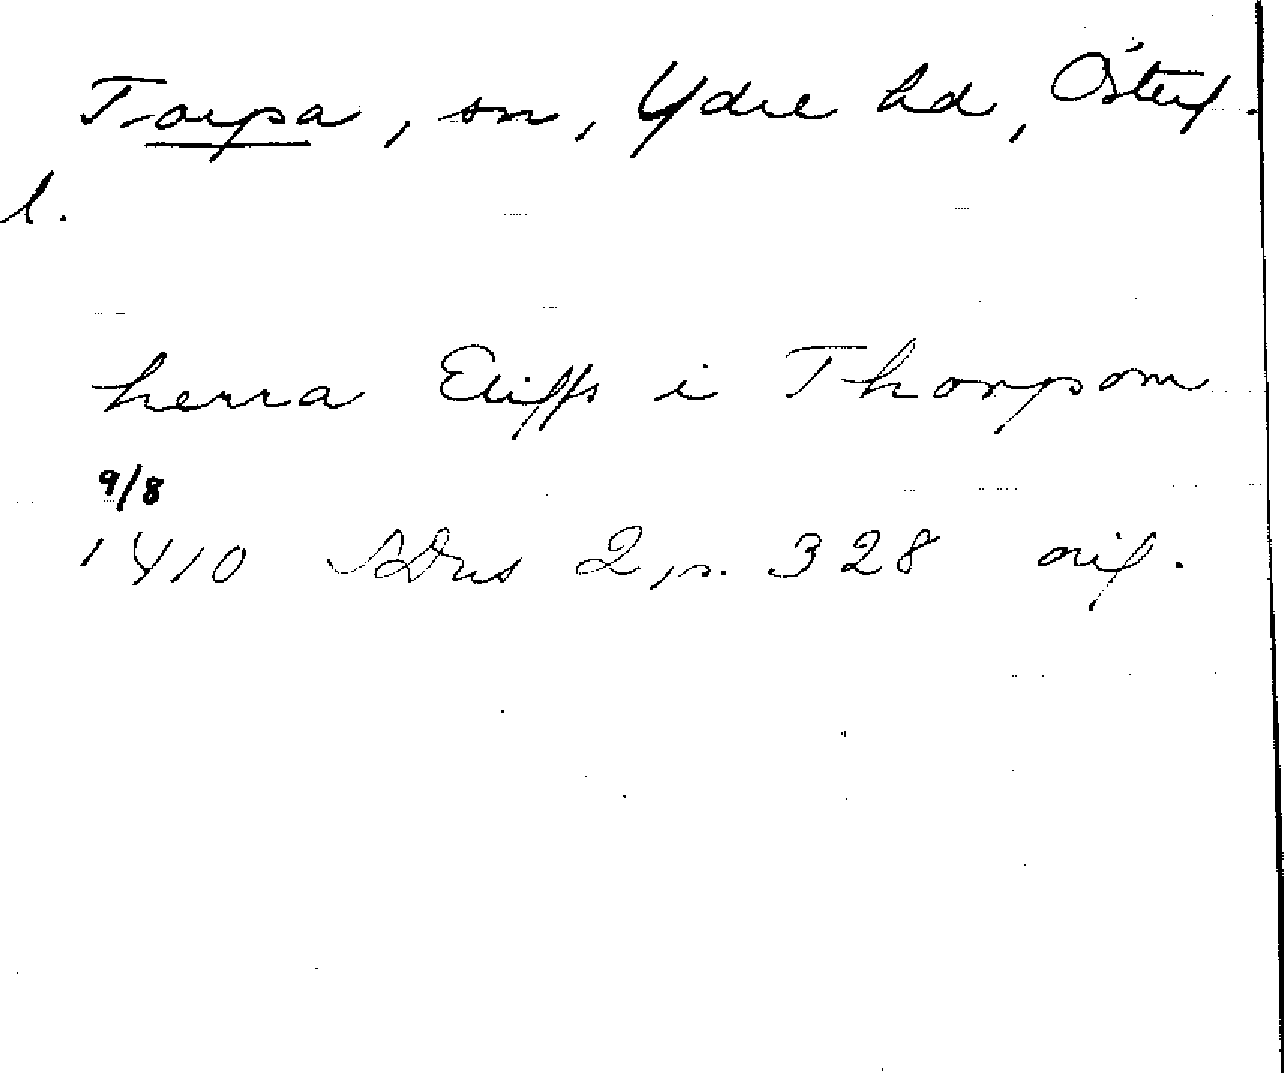 Torpa, sn, Ydre hd, Österg.
l.
herra Eliffs i Thorpom
9/8
1410 SDns 2, s. 328 orig.